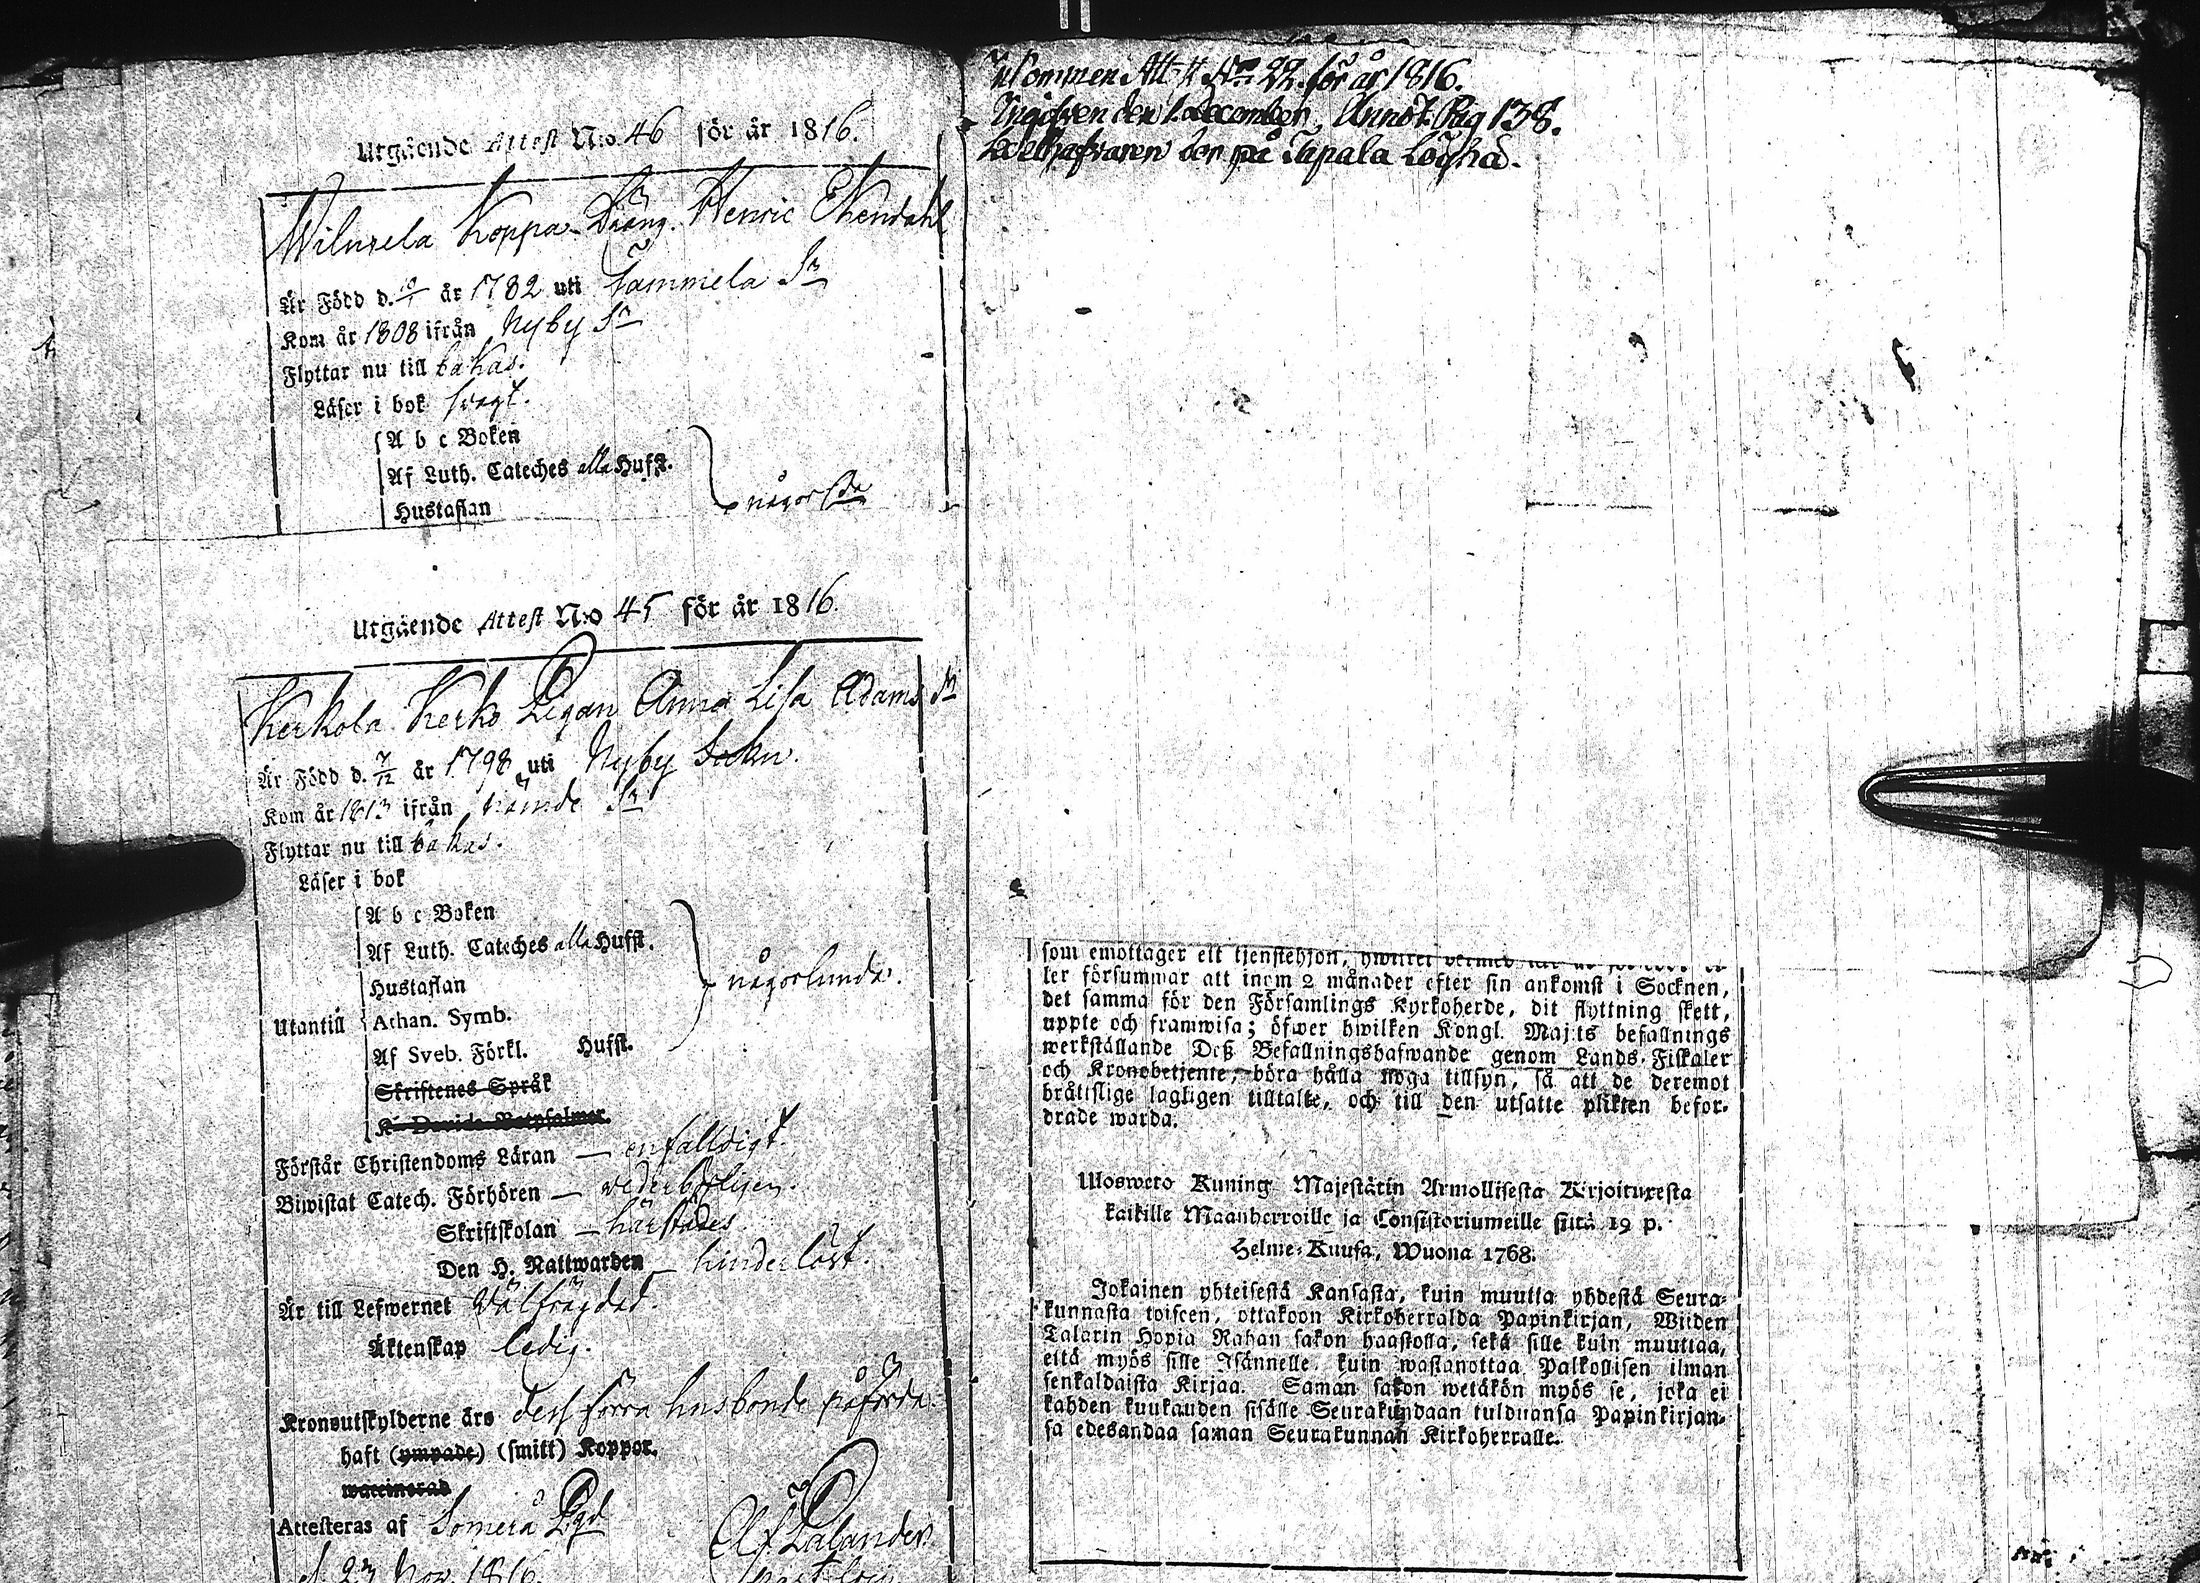 Utgående Attest N:o 46 för år 1816.
Wiluxela Koppa Dräng. Henric Ekendahl
Är Född d. 10/1 år 1782 uti Tammela Sn
Kom år 1808 ifrån Nyby Sn
Flyttar nu till bakas.
Läser i bok svagt.
A b c Boken
Af Luth. Cateches alla Hufst.
Hustaflan
någorl.da
Utgående Attest N:o 45 för år 1816.
Kerkola Kerko Pigan Anna Lisa Adams dr
Är Född d. 7/12 år 1798 uti Nyby Sokn.
Kom år 1813 ifrån Sn
Flyttar nu till bakas.
Läser i bok
A b c Boken
Af Luth. Cateches alla Hufst.
Hustaflan
någorlunda.
Utantill Athan. Symb.
Af Sveb. Förkl. Hufst.
Skriftenes Språk
K. Davids Botpsalmer.
Förstår Christendoms Läran — enfalldigt.
Biwistat Catech. Förhören — vederbörligen.
Skriftskolan — härstädes
Den H. Nattwarden — hinderlöst.
Är till Lefwernet Välfrägdad.
Äktenskap ledig.
Kronoutskylderne äro dess förra husbonde påförda.
haft (ympade) (smitt) Koppor.
waccinerad
Attesteras af Somero Pgd
d. 23 Nov. 1816.
Palander
Inkommen Att:t No 22. för år 1816.
Ingifven den 1. December. Annot. Pag 138.
bor på Tapala
som emottager ett tjenstehjon,
ler försummar att inom 2 månader efter sin ankomst i Socknen,
det samma för den Församlings Kyrkoherde, dit flyttning skett,
uppte och framwisa; öfwer hwilken Kongl. Maj:ts befallnings
werkställande Deß Befallningshafwande genom Lands-Fiskaler
och Kronobetjente, böra hålla noga tillsyn, så att de deremot
bråttslige lagligen tilltalte, och till den utsatte plikten befor-
drade warda.
Ulosweto Kuning: Majestätin Armollisesta Kirjoituxesta
kaikille Maanherroille ja Consistoriumeille siitä 19 p.
Helme-Kuusa, Wuona 1768.
Jokainen yhteisestä Kansasta, kuin muutta yhdestä Seura-
kunnasta toiseen, ottakoon Kirkoherralda Papinkirjan, Wiiden
Talarin Hopia Rahan sakon haastolla, sekä sille kuin muuttaa,
että myös sille Isännelle, kuin wastanottaa Palkollisen ilman
senkaldaista Kirjaa. Saman sakon wetäkön myös se, joka ei
kahden kuukauden sisälle Seurakundaan tulduansa Papinkirjan-
sa edesandaa saman Seurakunnan Kirkoherralle.